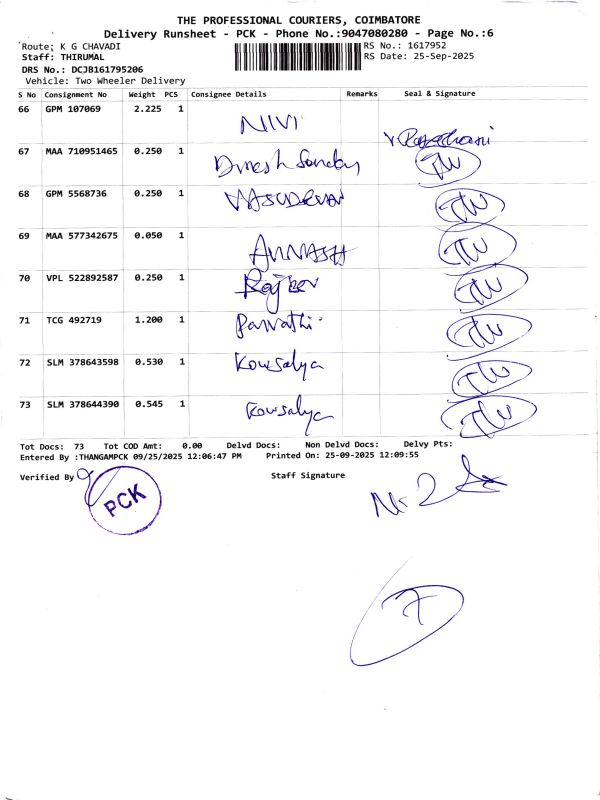 THE PROFESSIONAL COURIERS, COIMBATORE
Delivery Runsheet - PCK - Phone No.:9047080280 - Page No.:6
Route: K G CHAVADI RS No.: 1617952
Staff: THIRUMAL RS Date: 25-Sep-2025
DRS No.: DCJB161795206
Vehicle: Two Wheeler Delivery
S No Consignment No Weight PCS Consignee Details Remarks Seal & Signature
66 GPM 107069 2.225 1 NIVI
67 MAA 710951465 0.250 1 Dinesh
68 GPM 5568736 0.250 1 VASUDEVAN
69 MAA 577342675 0.050 1
70 VPL 522892587 0.250 1 Rajeev
71 TCG 492719 1.200 1 Parvathi
72 SLM 378643598 0.530 1 Kowsalya
73 SLM 378644390 0.545 1 Kowsalya
Tot Docs: 73 Tot COD Amt: 0.00 Delvd Docs: Non Delvd Docs: Delvy Pts:
Entered By :THANGAMPCK 09/25/2025 12:06:47 PM Printed On: 25-09-2025 12:09:55
Verified By Staff Signature
PCK